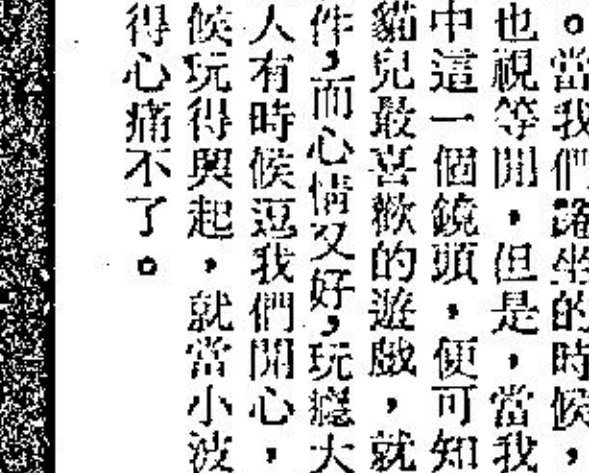 。當我們蹲坐的時候，
也視等閒，但是，當我
中這一個鏡頭，便可知
貓兒最喜歡的遊戲，就
件，而心情又好，玩癮大
人有時候逗我們開心，
候玩得興起，就當小波
得心痛不了。